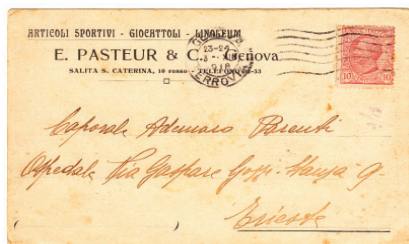 ARTICOLI SPORTIVI - GIOCATTOLI - LINOLEUM
E. PASTEUR & C. - Genova
SALITA S. CATERINA, 10 rosso - TELEFONO
23-24
FERROVIA
10 10
Caporale Ademaro Parenti
Ospedale Via Gaspare Gozzi. Stanza 9.
Trieste